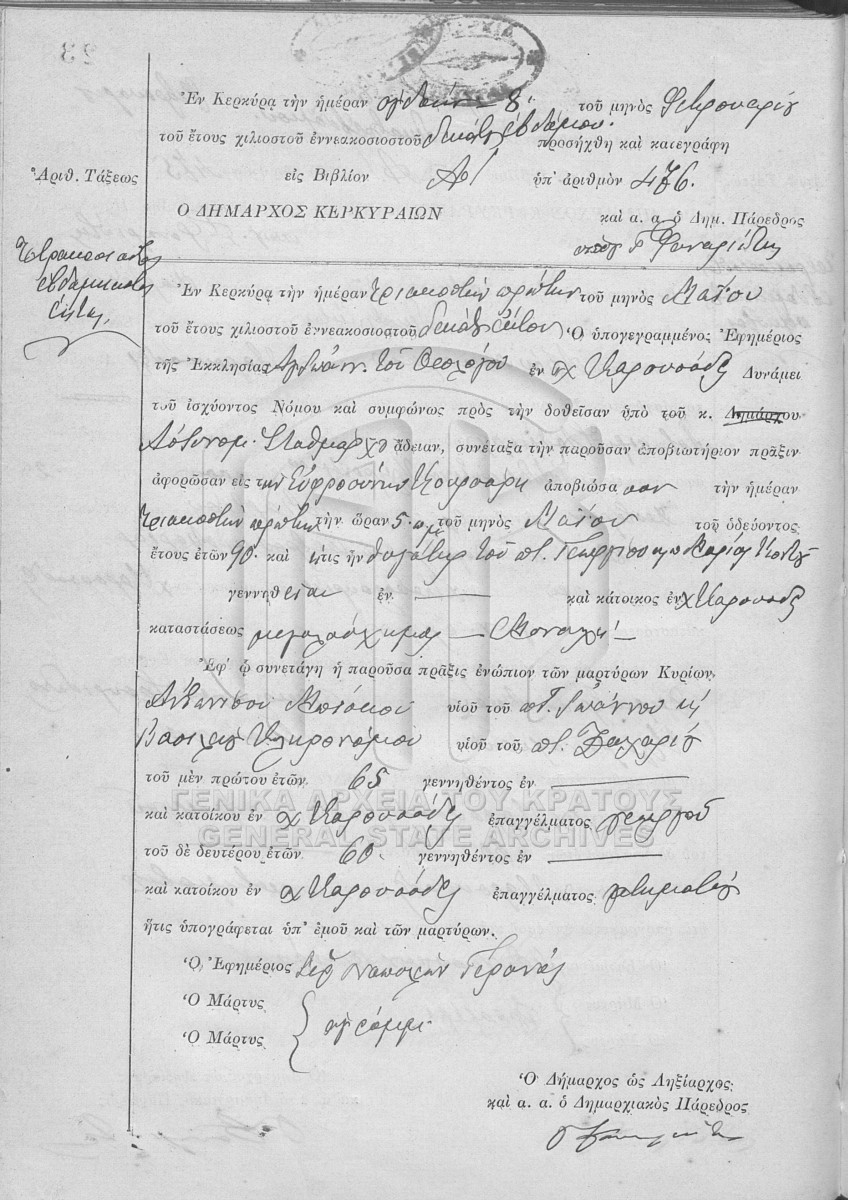 Ἐν Κερκύρᾳ τὴν ἡμέραν ὀγδόην 8 τοῦ μηνὸς Φεβρουαρίου
τοῦ ἔτους χιλιοστοῦ ἐννεακοσιοστοῦ δεκάτου ἑβδόμου. προσήχθη καὶ κατεγράφη
Ἀριθ. Τάξεως εἰς Βιβλίον Α1 ὑπ' ἀριθμὸν 476.
Ὁ ΔΗΜΑΡΧΟΣ ΚΕΡΚΥΡΑΙΩΝ καὶ α. α. ὁ Δημ. Πάρεδρος
Τετρακοσιοστὸς
ἑβδομηκοστὸς
ἕκτος
Ἐν Κερκύρᾳ τὴν ἡμέραν τριακοστὴν πρώτην τοῦ μηνὸς Μαΐου
τοῦ ἔτους χιλιοστοῦ ἐννεακοσιοστοῦ δεκάτου ἕκτου Ὁ ὑπογεγραμμένος Ἐφημέριος
τῆς Ἐκκλησίας Ἁγ. Ἰωάνν. τοῦ Θεολόγου ἐν χ Καρουσάδες Δυνάμει
τοῦ ἰσχύοντος Νόμου καὶ συμφώνως πρὸς τὴν δοθεῖσαν ὑπὸ τοῦ κ. Δημάρχου
Ἀστυνομ. Σταθμάρχου ἄδειαν, συνέταξα τὴν παροῦσαν ἀποβιωτήριον πρᾶξιν
ἀφορῶσαν εἰς τὴν Εὐφροσύνην ἀποβιώσασαν τὴν ἡμέραν
τριακοστὴν πρώτην τὴν ὥραν 5 μ.μ. τοῦ μηνὸς Μαΐου τοῦ ὁδεύοντος
ἔτους ἐτῶν 90. καὶ ἥτις ἦν θυγάτηρ τοῦ ποτ. Γεωργίου καὶ Μαρίας
γεννηθεῖσα ἐν — καὶ κάτοικος ἐν χ Καρουσάδες
καταστάσεως μεγαλόσχημος — Μοναχὴ —
Ἐφ' ᾧ συνετάγη ἡ παροῦσα πρᾶξις ἐνώπιον τῶν μαρτύρων Κυρίων,
Ἀντωνίου υἱοῦ τοῦ ποτ. Ἰωάννου κ
Βασιλείου Κληρονόμου υἱοῦ τοῦ ποτ. Ζαχαρίου
τοῦ μὲν πρώτου ἐτῶν 65 γεννηθέντος ἐν —
ΓΕΝΙΚΑ ΑΡΧΕΙΑ ΤΟΥ ΚΡΑΤΟΥΣ
καὶ κατοίκου ἐν χ Καρουσάδες ἐπαγγέλματος γεωργοῦ
GENERAL STATE ARCHIVES
τοῦ δὲ δευτέρου ἐτῶν 60. γεννηθέντος ἐν —
καὶ κατοίκου ἐν χ Καρουσάδες ἐπαγγέλματος κτηματίου
ἥτις ὑπογράφεται ὑπ' ἐμοῦ καὶ τῶν μαρτύρων.
Ὁ Ἐφημέριος
Ὁ Μάρτυς
Ὁ Μάρτυς
Ὁ Δήμαρχος ὡς Ληξίαρχος
καὶ α. α. ὁ Δημαρχιακὸς Πάρεδρος